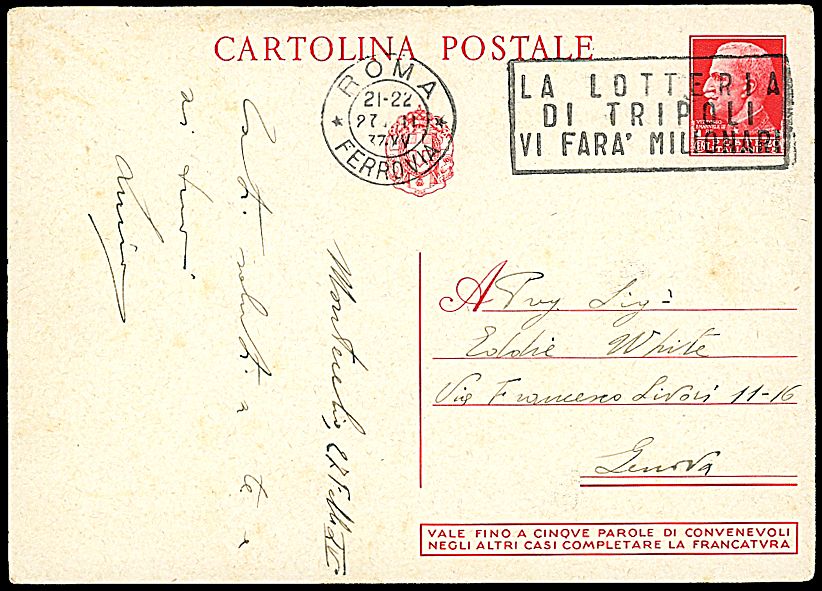 CARTOLINA POSTALE
ROMA
21-22
27. II
37 XV
FERROVIA
LA LOTTERIA
DI TRIPOLI
VI FARA' MILIONARI
A Preg. Sig.
Eddie White
Via Francesco Livori 11-16
Genova
VALE FINO A CINQVE PAROLE DI CONVENEVOLI
NEGLI ALTRI CASI COMPLETARE LA FRANCATVRA
saluti a te e
ai tuoi